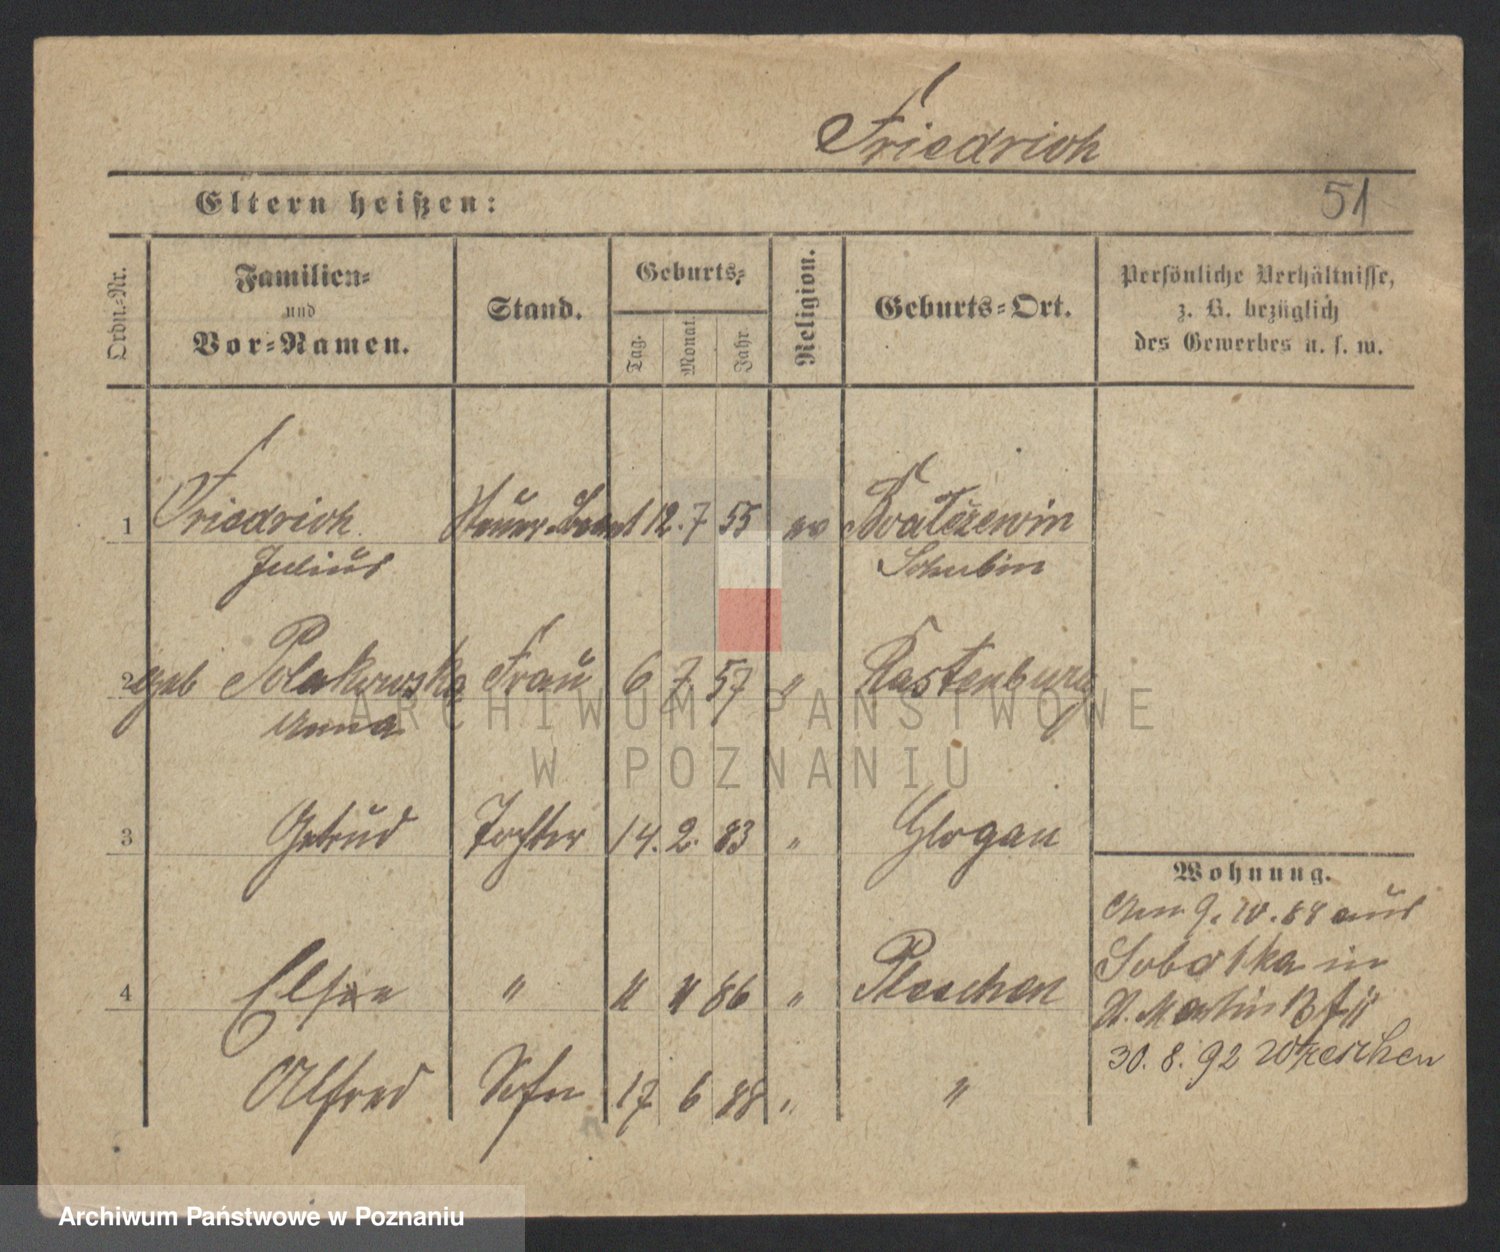 Friedrich
Eltern heißen:
51
Ordn.-Nr.
Familien-
und
Vor-Namen.
Stand.
Geburts-
Tag.
Monat
Jahr
Religion.
Geburts-Ort.
Persönliche Verhältnisse,
z. B. bezüglich
des Gewerbes u. s. w.
1 Friedrich 12. 7 55 ev
Julius Schubin
2 geb Polakowska Frau 6 7 57 " Rastenburg
Anna
3 Getrud Tochter 14. 2. 83 " Glogau
Wohnung.
Am 9. 10. 88 aus
Sobotka in
4 Else " 86 " Pleschen
St. Martin 13
30. 8. 92 Wreschen
Alfred Sohn 17 6 88 " "
ARCHIWUM PAŃSTWOWE
W POZNANIU
Archiwum Państwowe w Poznaniu